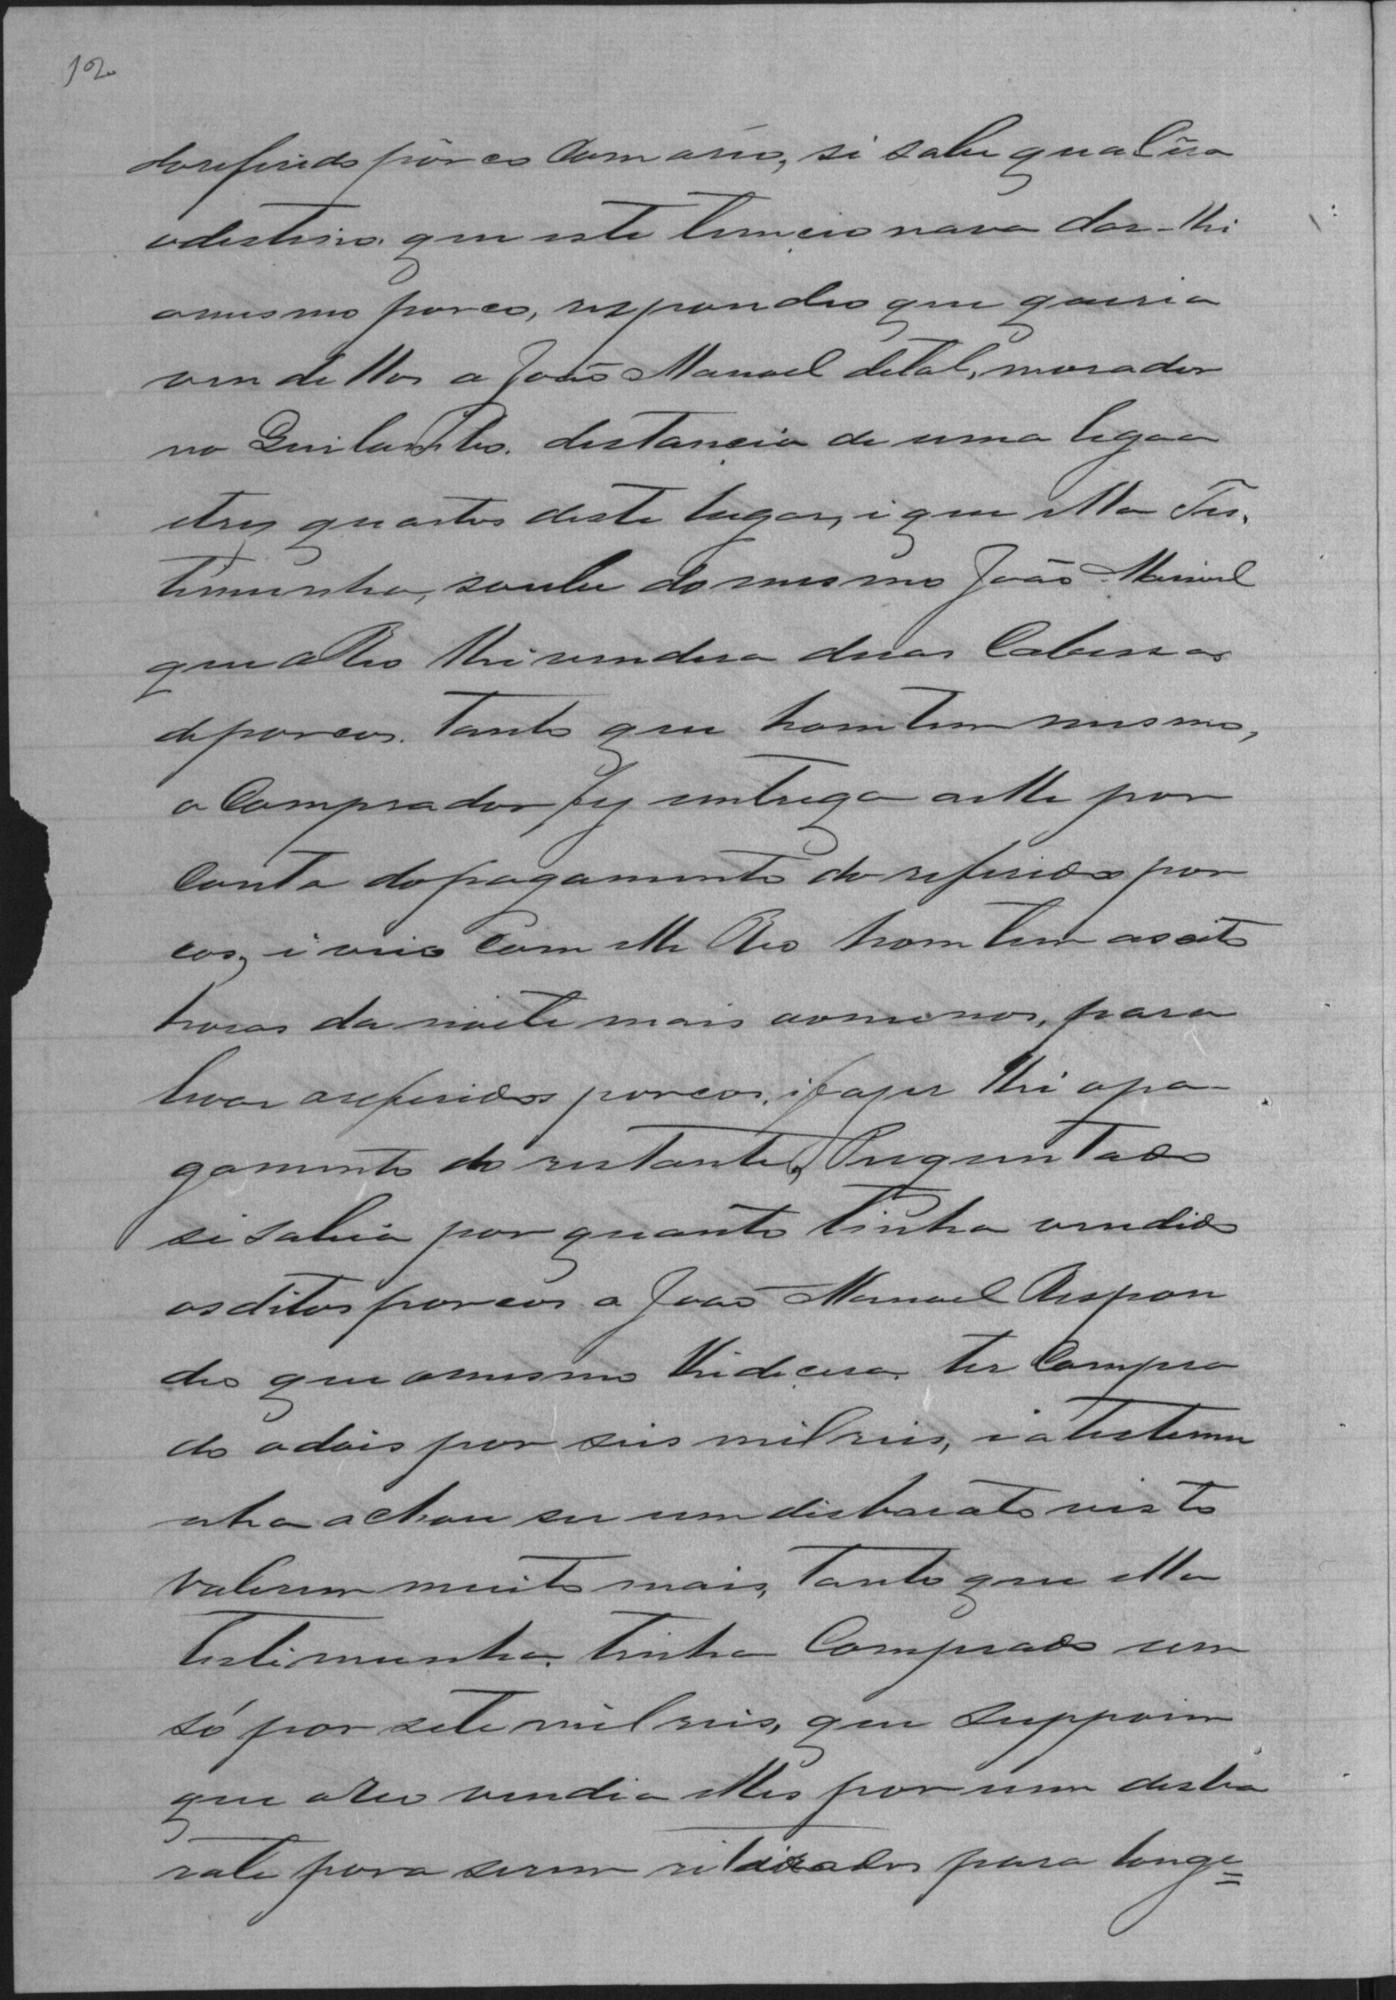 12
do referido pôrco Com arii, si sabe qual éra
o destino que este tencionava dar-lhi
o mesmo porco, respondeo que queria
vendellos a João Manoel detal, morador
no distancia de uma legoa
e tres quartos deste lugar, i que ella Tes-
timunha, soube do mesmo João Manoel
que o Reo lhi vendera duas Cabessas
de porcos. tanto que hontem mesmo,
o Comprador fez entrega a elle por
Conta do pagamento do referidos por
cos, i veio Com elle Reo hontem as oito
horas da noite mais ao menos, para
levar os referidos porcos, i fazer lhi o pa-
gamento do restante, Preguntado
si sabia por quanto tinha vendido
os ditos porcos a João Manoel Respon
deo que o mesmo lhi dicera ter Compra
do o dois por seis mil reis, i a testemu
nha achou ser um disbarato visto
valerem muito mais, tanto que ella
testimunha tinha Comprado um
só por sete mil reis, que suppoim
que o Reo vendia elles por um desba
rate para serem retirados para longe=